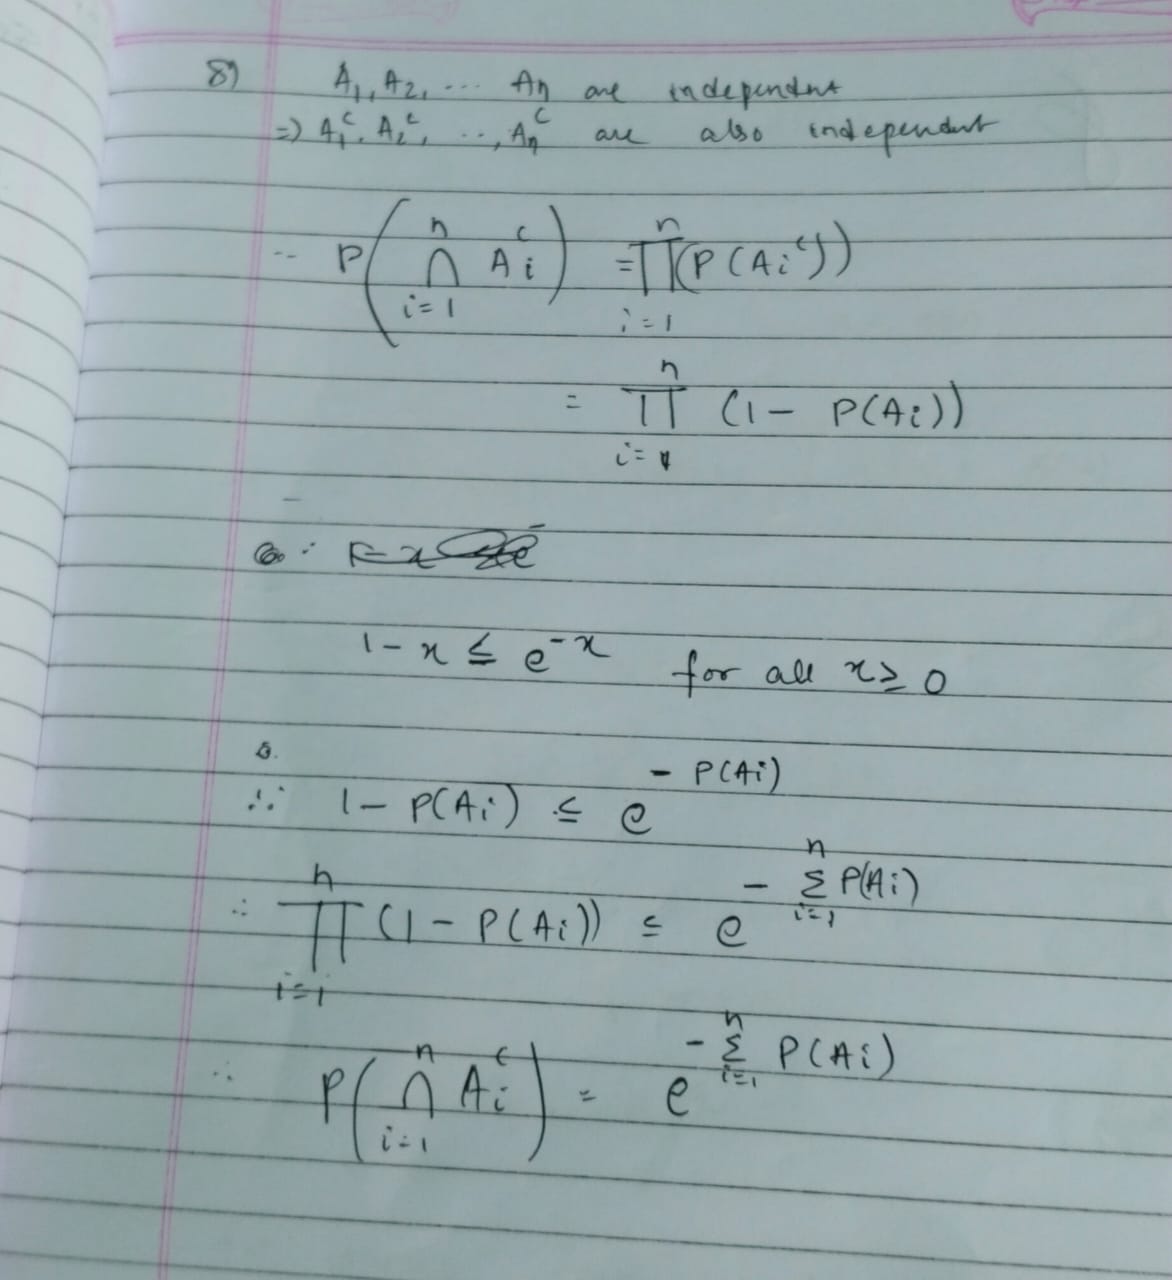 8) A₁, A₂, ... Aₙ are independent
=) A₁ᶜ, A₂ᶜ, ..., Aₙᶜ are also independent
∴ P(⋂ᵢ₌₁ⁿ Aᵢᶜ) = ∏ᵢ₌₁ⁿ (P(Aᵢᶜ))
= ∏ᵢ₌₁ⁿ (1 - P(Aᵢ))
1 - x ≤ e^(-x) for all x ≥ 0
∴ 1 - P(Aᵢ) ≤ e^(-P(Aᵢ))
∴ ∏ᵢ₌₁ⁿ (1 - P(Aᵢ)) ≤ e^(-∑ᵢ₌₁ⁿ P(Aᵢ))
∴ P(⋂ᵢ₌₁ⁿ Aᵢᶜ) = e^(-∑ᵢ₌₁ⁿ P(Aᵢ))